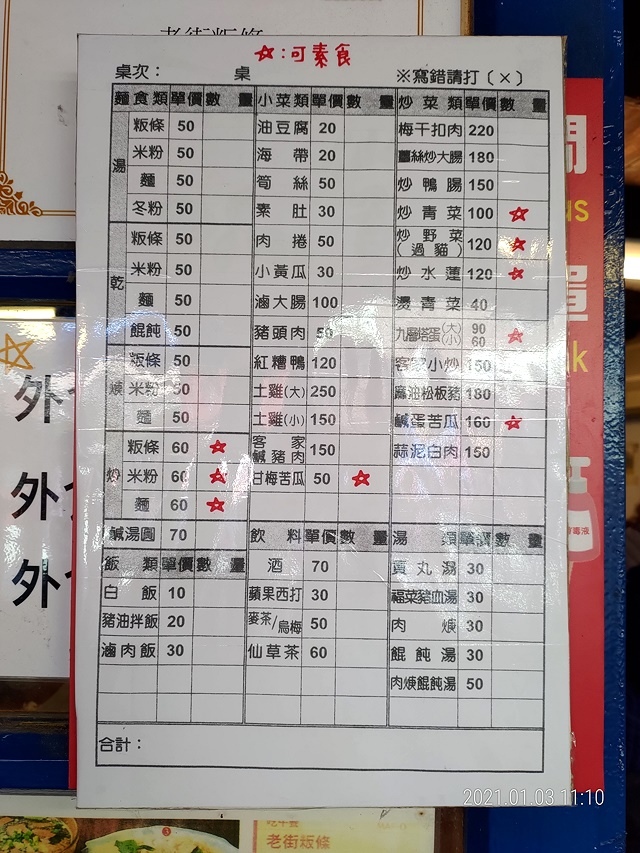 老街粄條
☆:可素食
桌次： 桌 ※寫錯請打〔×〕
麵食類 單價 數量 小菜類 單價 數量 炒菜類 單價 數量
湯 粄條 50 油豆腐 20 梅干扣肉 220
米粉 50 海帶 20 絲炒大腸 180
麵 50 筍絲 50 炒鴨腸 150
冬粉 50 素肚 30 炒青菜 100 ☆
乾 粄條 50 肉捲 50 炒野菜(過貓) 120 ☆
米粉 50 小黃瓜 30 炒水蓮 120 ☆
麵 50 滷大腸 100 燙青菜 40
餛飩 50 豬頭肉 50 九層塔蛋(大)(小) 90 60 ☆
焿 粄條 50 紅糟鴨 120 客家小炒 150
米粉 50 土雞(大) 250 麻油松板豬 180
麵 50 土雞(小) 150 鹹蛋苦瓜 160 ☆
炒 粄條 60 ☆ 客家鹹豬肉 150 蒜泥白肉 150
米粉 60 ☆ 甘梅苦瓜 50 ☆
麵 60 ☆
鹹湯圓 70 飲料 單價 數量 湯類 單價 數量
飯類 單價 數量 酒 70 貢丸湯 30
白飯 10 蘋果西打 30 福菜豬血湯 30
豬油拌飯 20 麥茶/烏梅 50 肉焿 30
滷肉飯 30 仙草茶 60 餛飩湯 30
肉焿餛飩湯 50
合計：
外
外
外
us
單
k
老街粄條
2021.01.03 11:10